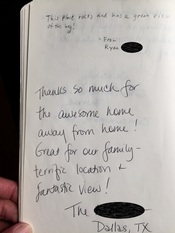 This place rocks and has a great view
of the city!
- From
Ryan
Thanks so much for
the awesome home
away from home!
Great for our family-
terrific location +
fantastic view!
The
Dallas, TX